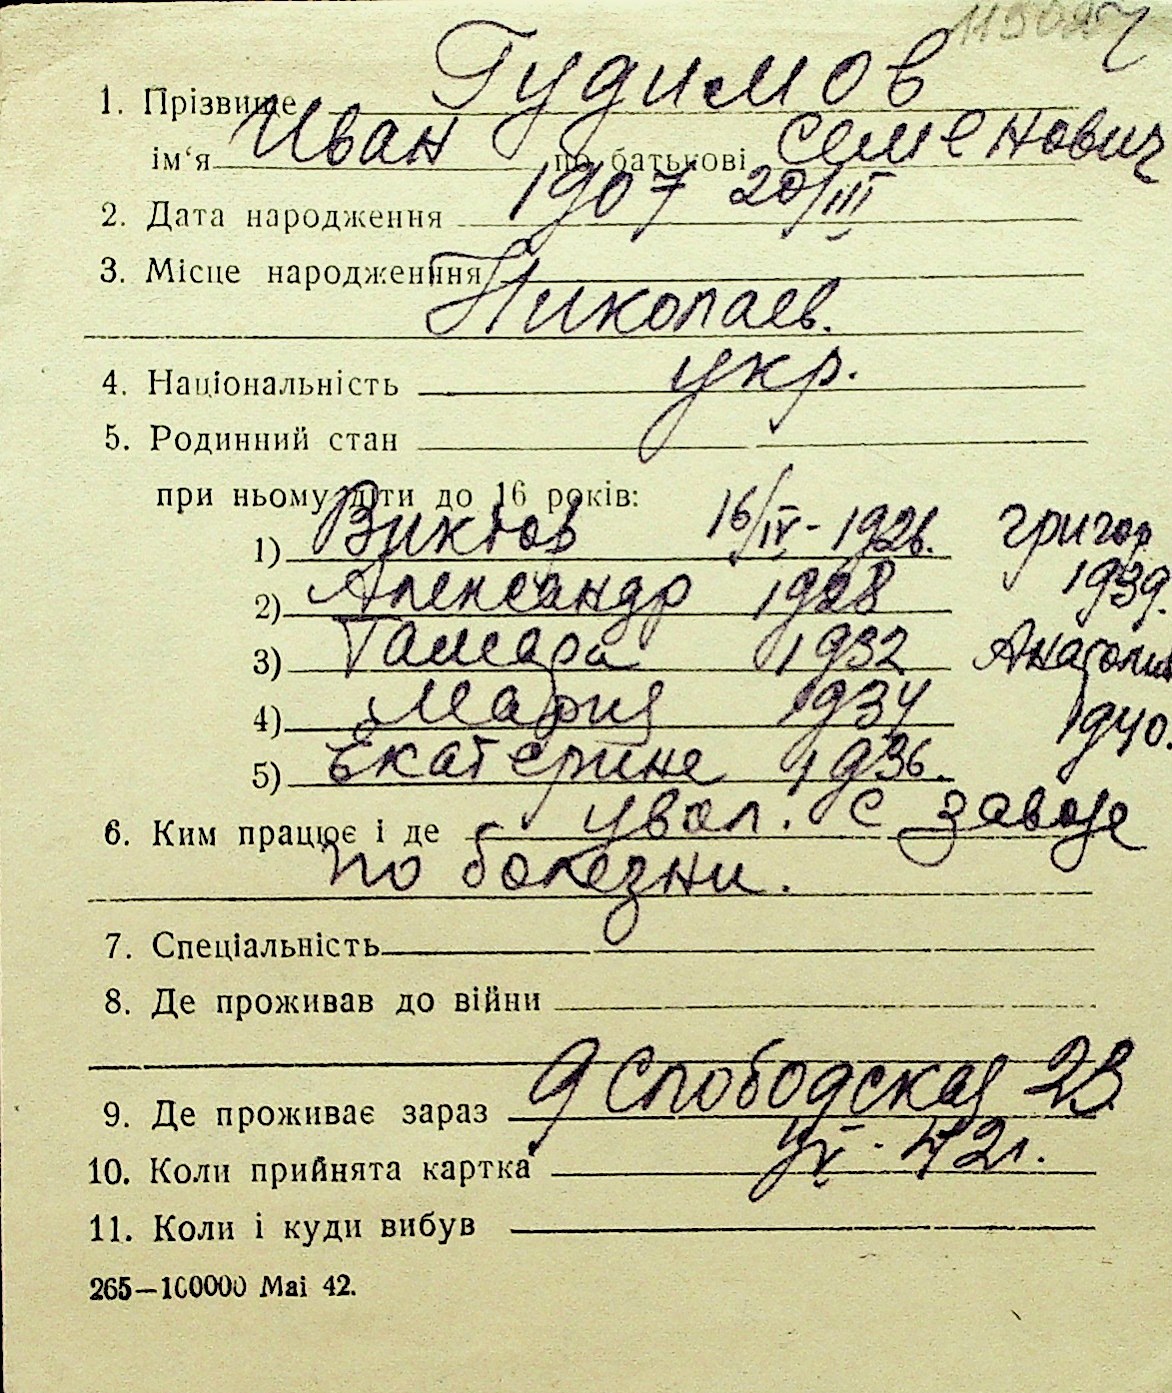 1. Прізвище Гудимов
ім'я Иван по батькові Семенович
2. Дата народження 1907 20/III
3. Місце народженння
Николаев.
4. Національність укр.
5. Родинний стан
при ньому діти до 16 років:
1) Виктов 16/IV - 1926. Григор
2) Александр 1928 1939.
3) Тамара 1932 Анатолий
4) Мария 1934 1940.
5) Екатерине 1936.
6. Ким працює і де увол. с завода
по болезни.
7. Спеціальність
8. Де проживав до війни
9. Де проживає зараз 9 Слободская 23
10. Коли прийнята картка 42г.
11. Коли і куди вибув
265—100000 Mai 42.